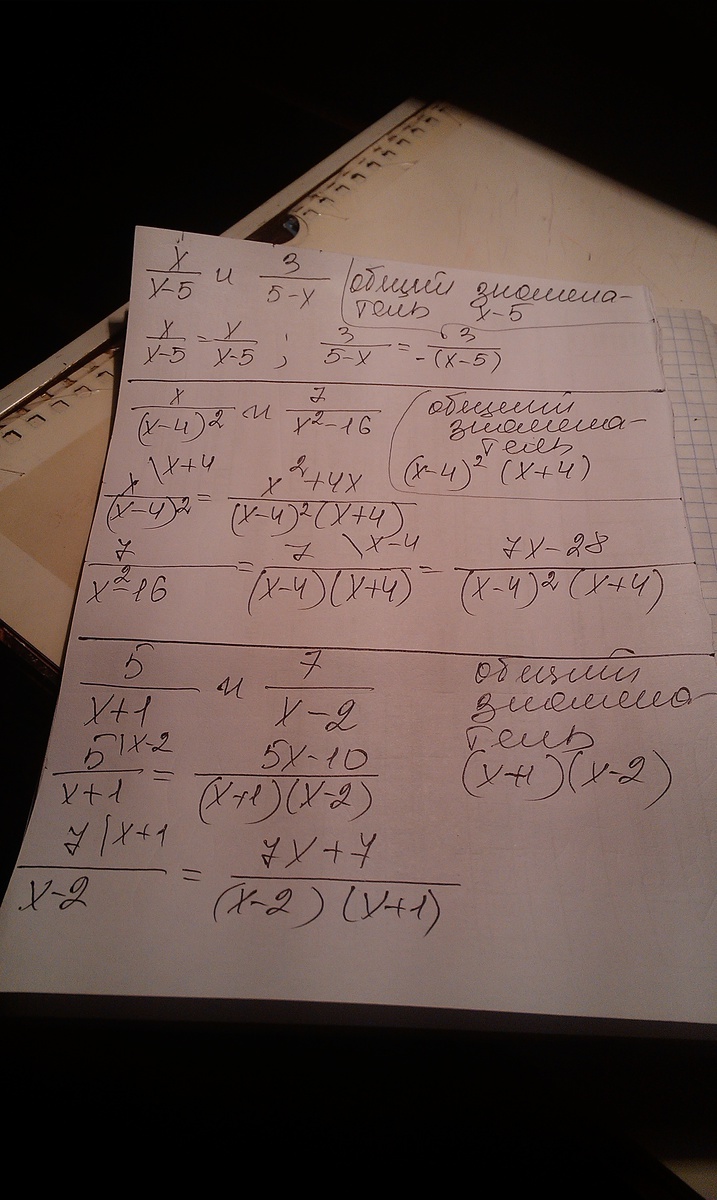 x/(x-5) и 3/(5-x) общий знамена-
тель x-5
x/(x-5) = x/(x-5) ; 3/(5-x) = 3/(-(x-5))
x/(x-4)² и 7/(x²-16) общий
знамена-
тель
(x-4)² (x+4)
x\x+4/(x-4)² = (x²+4x)/((x-4)²(x+4))
7/(x²-16) = 7\x-4/((x-4)(x+4)) = (7x-28)/((x-4)²(x+4))
5/(x+1) и 7/(x-2) общий
знамена
тель
(x+1)(x-2)
5|x-2/(x+1) = (5x-10)/((x+1)(x-2))
7|x+1/(x-2) = (7x+7)/((x-2)(x+1))